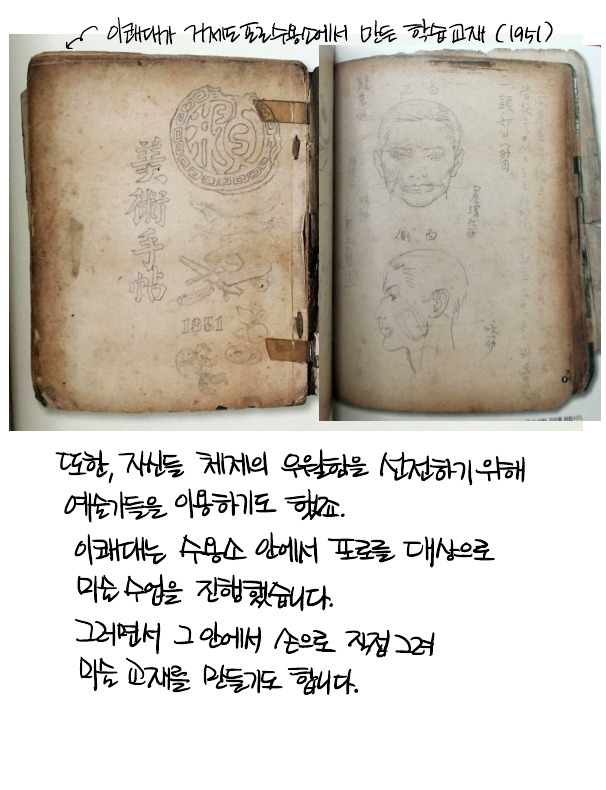 이쾌대가 거제도 포로수용소에서 만든 학습교재 (1951)
美術手帖
1951
正面
側面
또한, 자신들 체제의 우월함을 선전하기 위해
예술가들을 이용하기도 했죠.
이쾌대는 수용소 안에서 포로를 대상으로
미술 수업을 진행했습니다.
그러면서 그 안에서 손으로 직접 그려
미술 교재를 만들기도 합니다.